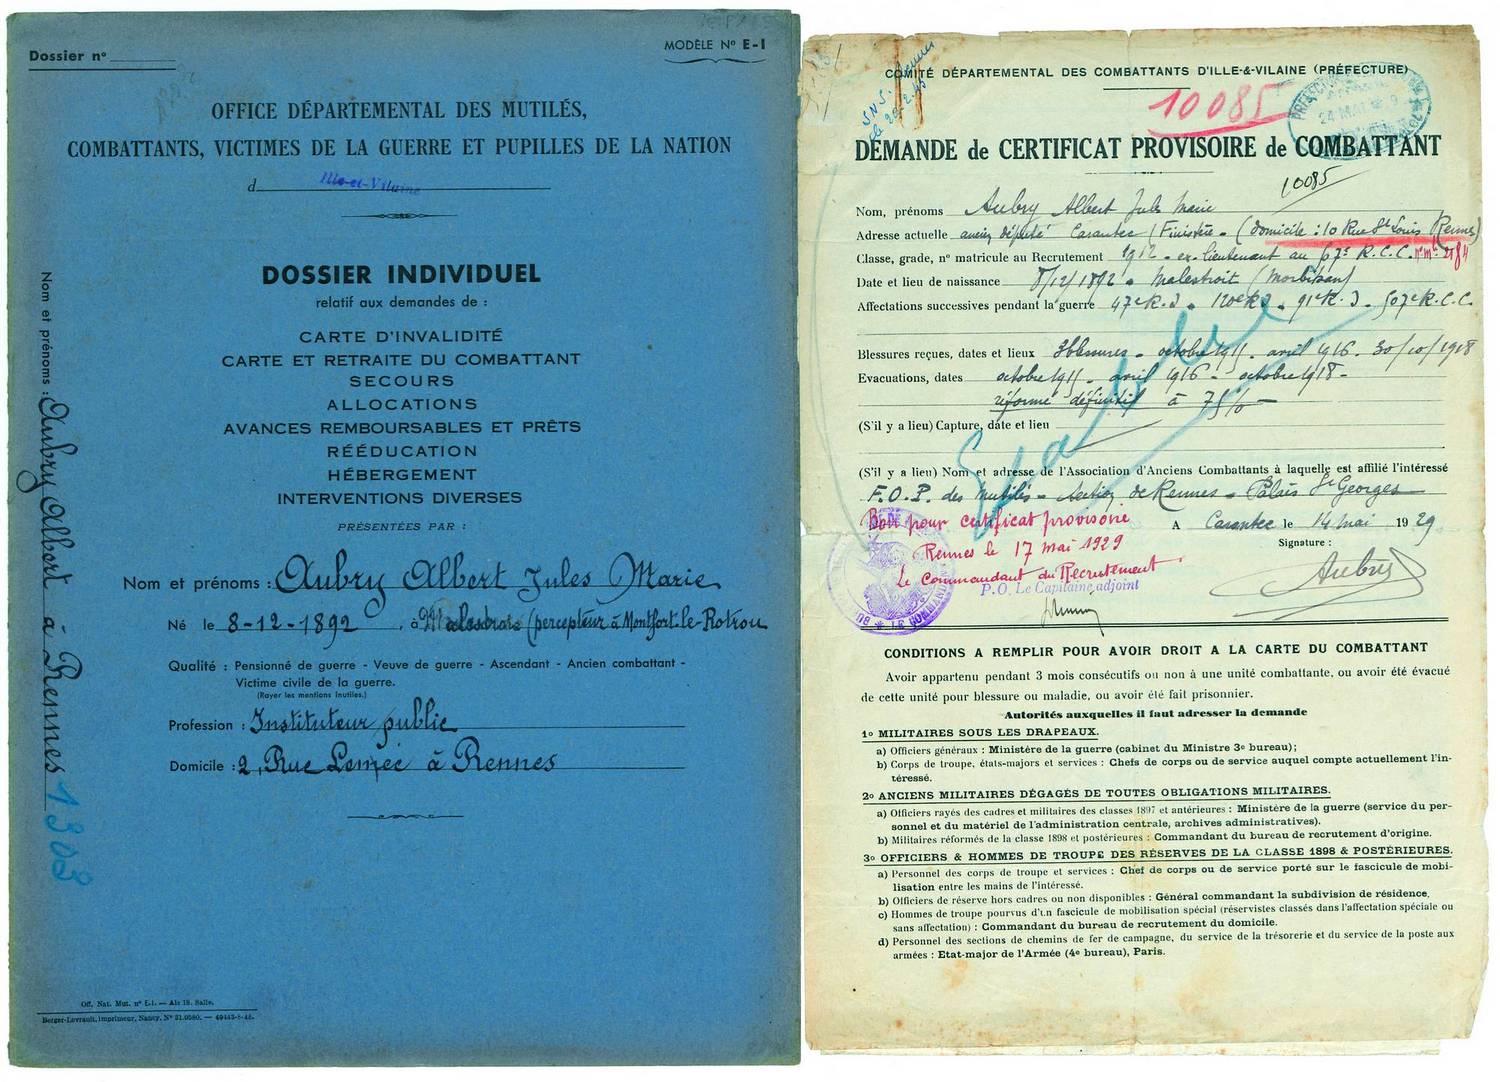 Dossier n°
MODÈLE N° E-I
OFFICE DÉPARTEMENTAL DES MUTILÉS,
COMBATTANTS, VICTIMES DE LA GUERRE ET PUPILLES DE LA NATION
d Ille-et-Vilaine
DOSSIER INDIVIDUEL
relatif aux demandes de :
CARTE D'INVALIDITÉ
CARTE ET RETRAITE DU COMBATTANT
SECOURS
ALLOCATIONS
AVANCES REMBOURSABLES ET PRÊTS
RÉÉDUCATION
HÉBERGEMENT
INTERVENTIONS DIVERSES
PRÉSENTÉES PAR :
Nom et prénoms : Aubry Albert Jules Marie
Né le 8-12-1892, à (percepteur à Montfort-le-Rotrou
Qualité : Pensionné de guerre - Veuve de guerre - Ascendant - Ancien combattant -
Victime civile de la guerre.
(Rayer les mentions inutiles.)
Profession : Instituteur public
Domicile : 2, Rue à Rennes
Nom et prénoms : Aubry Albert à Rennes 1303
Off. Nat. Mut. n° E-I. — Alr 18. Salle.
Berger-Levrault, imprimeur, Nancy, N° 31.0580. — 49443-8-46.
COMITÉ DÉPARTEMENTAL DES COMBATTANTS D'ILLE-&-VILAINE (PRÉFECTURE)
S.N.S. Rennes
10085
24 MAI
DEMANDE de CERTIFICAT PROVISOIRE de COMBATTANT
10085
Nom, prénoms Aubry Albert Jules Marie
Adresse actuelle ancien député Carantec (Finistère - (domicile : 10 Rue St Louis Rennes)
Classe, grade, n° matricule au Recrutement 1912 - ex-lieutenant au R.C.C.
Date et lieu de naissance 8/12/1892 - Malestroit (Morbihan)
Affectations successives pendant la guerre 47e R.I - 120e R.I - 91e R.I - 507e R.C.C.
Blessures reçues, dates et lieux 3 blessures - octobre 1915 - avril 1916 - 30/10/1918
Evacuations, dates octobre 1915 - avril 1916 - octobre 1918 -
réformé définitif à 75% -
(S'il y a lieu) Capture, date et lieu
(S'il y a lieu) Nom et adresse de l'Association d'Anciens Combattants à laquelle est affilié l'intéressé
F.O.P. des Mutilés - Section de Rennes - Palais St Georges
Bon pour certificat provisoire
A Carantec le 14 mai 1929
Rennes le 17 Mai 1929
Signature :
Le Commandant du Recrutement
P.O. Le Capitaine adjoint
Aubry
CONDITIONS A REMPLIR POUR AVOIR DROIT A LA CARTE DU COMBATTANT
Avoir appartenu pendant 3 mois consécutifs ou non à une unité combattante, ou avoir été évacué
de cette unité pour blessure ou maladie, ou avoir été fait prisonnier.
Autorités auxquelles il faut adresser la demande
1° MILITAIRES SOUS LES DRAPEAUX.
a) Officiers généraux : Ministère de la guerre (cabinet du Ministre 3e bureau);
b) Corps de troupe, états-majors et services : Chefs de corps ou de service auquel compte actuellement l'in-
téressé.
2° ANCIENS MILITAIRES DÉGAGÉS DE TOUTES OBLIGATIONS MILITAIRES.
a) Officiers rayés des cadres et militaires des classes 1897 et antérieures : Ministère de la guerre (service du per-
sonnel et du matériel de l'administration centrale, archives administratives).
b) Militaires réformés de la classe 1898 et postérieures : Commandant du bureau de recrutement d'origine.
3° OFFICIERS & HOMMES DE TROUPE DES RÉSERVES DE LA CLASSE 1898 & POSTÉRIEURES.
a) Personnel des corps de troupe et services : Chef de corps ou de service porté sur le fascicule de mobi-
lisation entre les mains de l'intéressé.
b) Officiers de réserve hors cadres ou non disponibles : Général commandant la subdivision de résidence.
c) Hommes de troupe pourvus d'un fascicule de mobilisation spécial (réservistes classés dans l'affectation spéciale ou
sans affectation) : Commandant du bureau de recrutement du domicile.
d) Personnel des sections de chemins de fer de campagne, du service de la trésorerie et du service de la poste aux
armées : Etat-major de l'Armée (4e bureau), Paris.